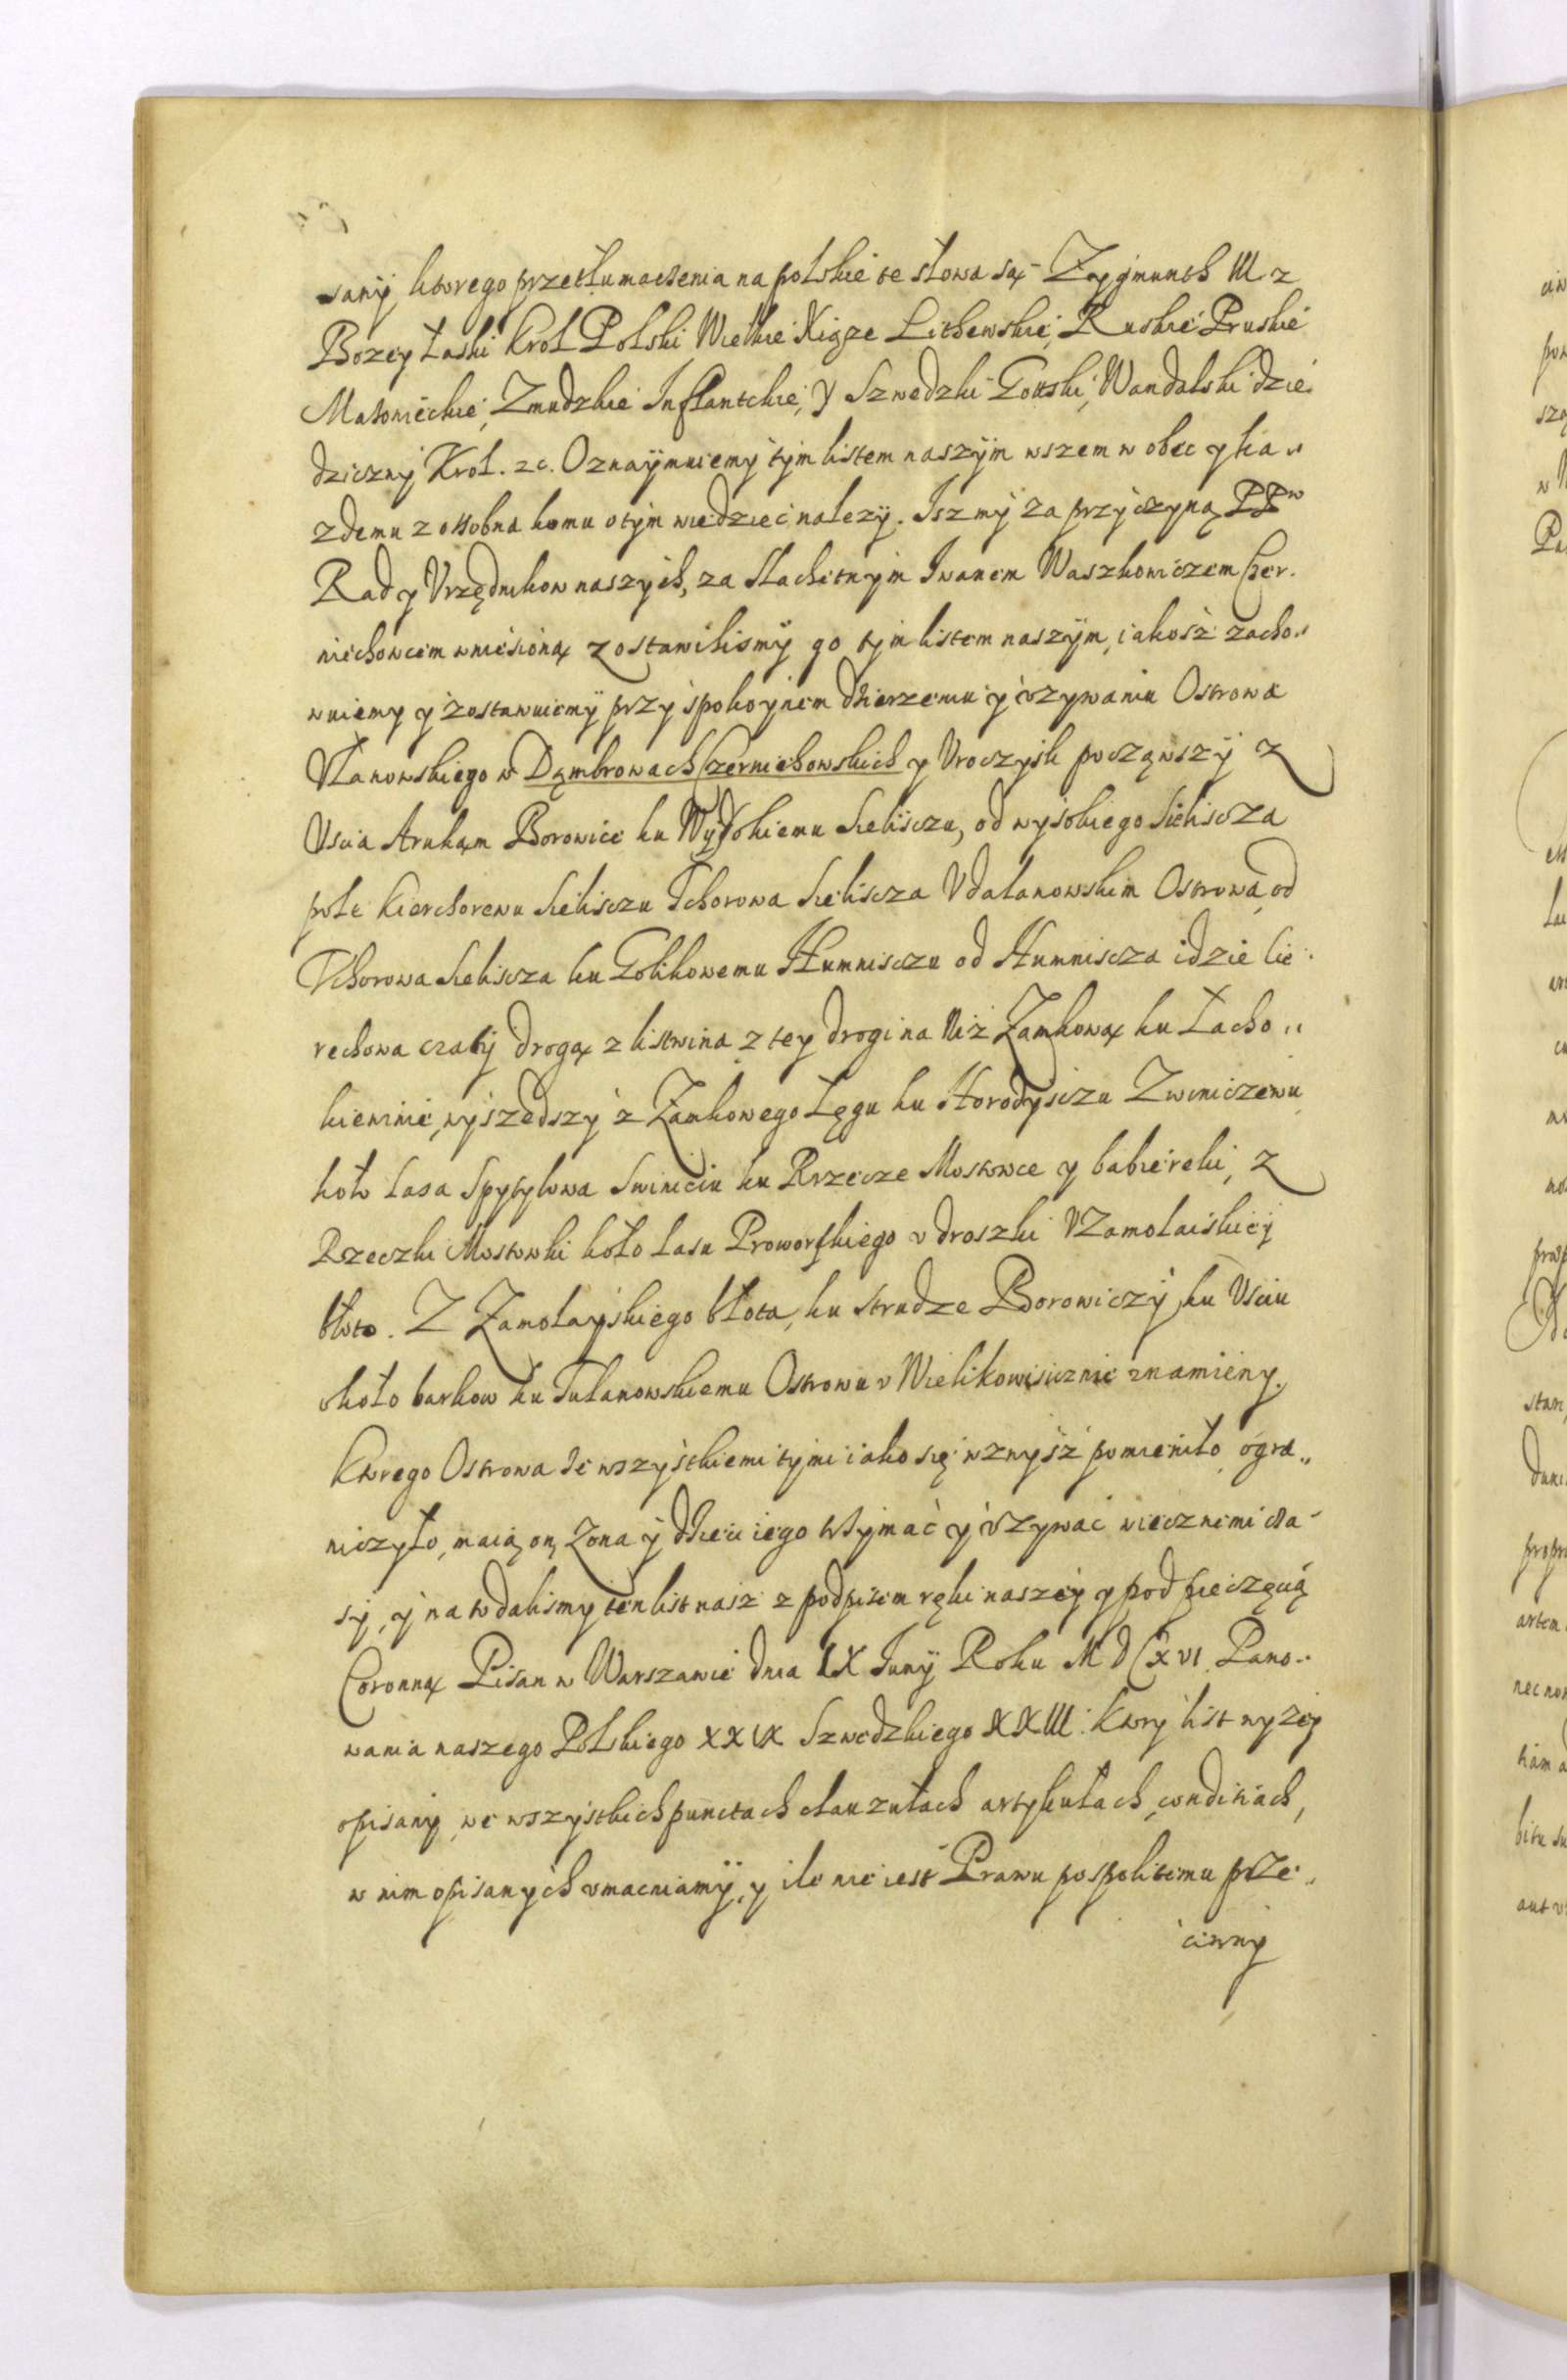 sany ktorego przetłumaczenia na polskie te słowa są Zygmunth III z
Bozey Łaski Krol Polski Wielkie Xiąze Lithewskie, Ruskie Pruskie
Mazowieckie, Zmudzkie Inflantckie, y Szwedzki Gottski, Wandalski dzie
dziczny Krol. zc. Oznaymuiemy tym listem naszym wszem w obec y ka„
zdemu z ossobna komu o tym wiedziec nalezy. Isz my za przyczyną PPw
Rad y Vrzędnikow naszych, za Slachetnym Iwanem Waszkowiczem Czer.
niechowcem wniesioną zostawilismy go tym listem naszym, iakosz zacho„
wuiemy y zostawuiemy przy spokoynem dzierzeniu y vzywaniu Ostrowa
w Dąmbrowach Czerniehowskich y Vroczysk począwszy z
Vscia Borowice ku Wysokiemu Sieliszczu, od wysokiego Sieliscza
pole Sieliszczu Tchorowa Sieliscza Ostrowa, od
Tchorowa Sieliscza ku Golikowemu Humniszczu od Humniscza idzie Cie
rechowa czały drogą z listwina z tey drogi na Niz Zamkową ku Łacho„
kiewinie, wyszedszy z Zamkowego Łęgu ku Horodysczu Zwiniczewu
koło Lasa Spytylowa ku Rzecze Mostowce y babiereki, z
Rzeczki Mostowki koło Lasu v droszki
błoto. Z Zamołayskiego błota, ku strudze Borowiczy, ku Vsciu
około barkow ku Tułanowskiemu Ostrowu v znamieny.
Ktorego Ostrowa ze wszystkiemi tymi iako się wzwysz pomieniło, ogra„
niczyło, maią on, Zona y dzieci iego trzymać y vzywać wiecznemi cza
sy, y na to dalismy ten list nasz z podpisem ręki naszey y pod pieczęcią
Coronną Pisan w Warszawie dnia IX Juny Roku M D C XVI Pano„
wania naszego Polskiego XXIX Szwedzkiego XXIII. Ktory list wyzey
opisany we wszystkich punctach clauzułach artykułach, conditiach,
w nim opisanych vmacniamy, y ile nie iest Prawu pospolitemu prze„
ciwny